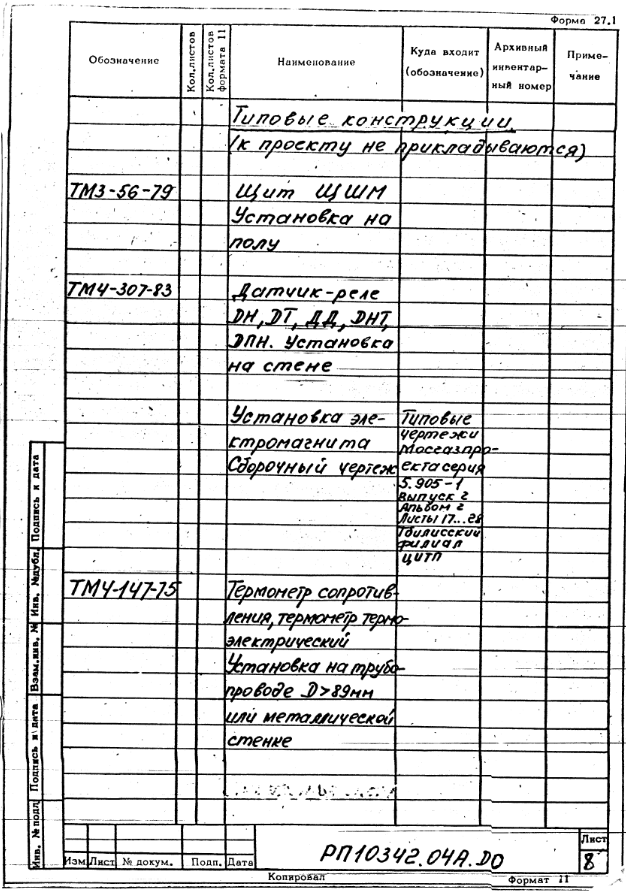 Форма 27.1
Обозначение
Кол.листов
Кол.листов
формата 11
Наименование
Куда входит
(обозначение)
Архивный
инвентар-
ный номер
Приме-
чание
Типовые конструкции
(к проекту не прикладываются)
ТМ3-56-79
Щит ЩШМ
Установка на
полу
ТМ4-307-83
Датчик-реле
ДН, ДТ, ДД, ДНТ,
ДПН. Установка
на стене
Установка эле-
ктромагнита
Сборочный чертеж
Типовые
чертежи
Мосгазпро-
екта серия
5.905-1
Выпуск 2
Альбом 2
Листы 17...28
Тбилисский
филиал
ЦИТП
ТМ4-147-75
Термометр сопротив-
ления, термометр термо-
электрический
Установка на трубо-
проводе D>89мм
или металлической
стенке
Инв. № подл.
Подпись и дата
Взам.инв. №
Инв. №дубл.
Подпись и дата
Изм.
Лист
№ докум.
Подп.
Дата
РП10342.04А.ДО
Лист
8
Копировал
Формат 11